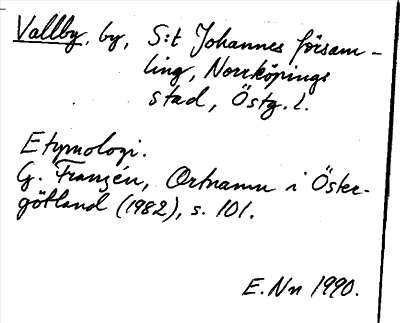 Vallby, by, S:t Johannes försam-
ling, Norrköpings
stad, Östg. l.
Etymologi.
G. Franzén, Ortnamn i Öster-
götland (1982), s. 101.
E. Nn 1990.